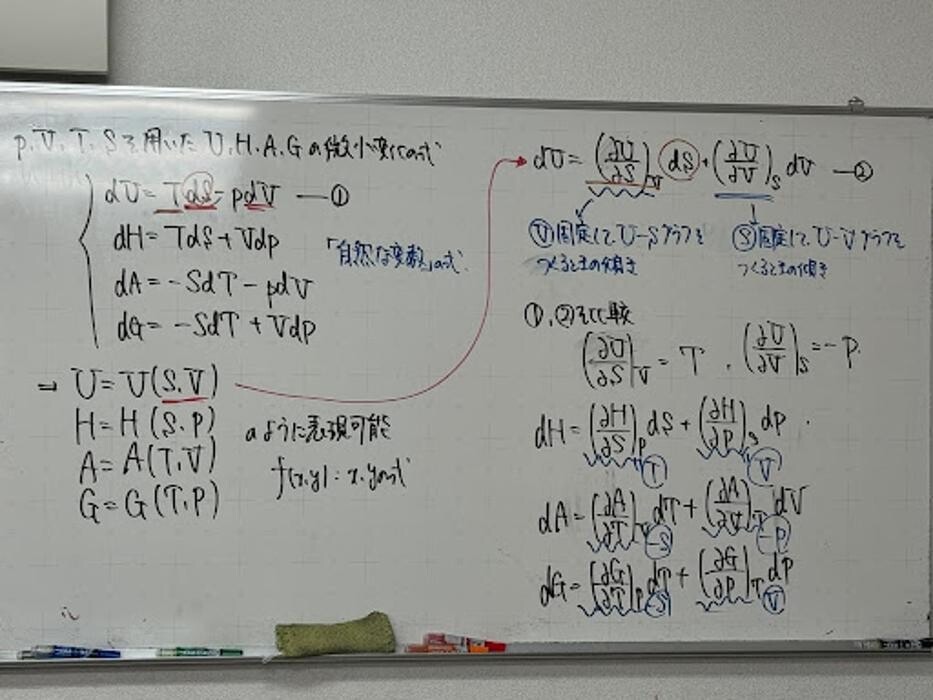 p, V, T, Sを用いた U, H, A, G の微小変化の式
dU = TdS - pdV ― ①
dH = TdS + Vdp
「自然な変数」の式
dA = -SdT - pdV
dG = -SdT + Vdp
→ U = U(S, V)
H = H(S, P)
A = A(T, V)
G = G(T, P)
のように表現可能
f(x, y) : x, yの式
dU = (∂U/∂S)_V dS + (∂U/∂V)_S dV ― ②
Ⓥ固定して、U-Sグラフを
つくるときの傾き
Ⓢ固定して、U-Vグラフを
つくるときの傾き
①, ②を比較
(∂U/∂S)_V = T , (∂U/∂V)_S = -P.
dH = (∂H/∂S)_P dS + (∂H/∂P)_S dP .
T V
dA = (∂A/∂T)_V dT + (∂A/∂V)_T dV
-S -P
dG = (∂G/∂T)_P dT + (∂G/∂P)_T dP
-S V